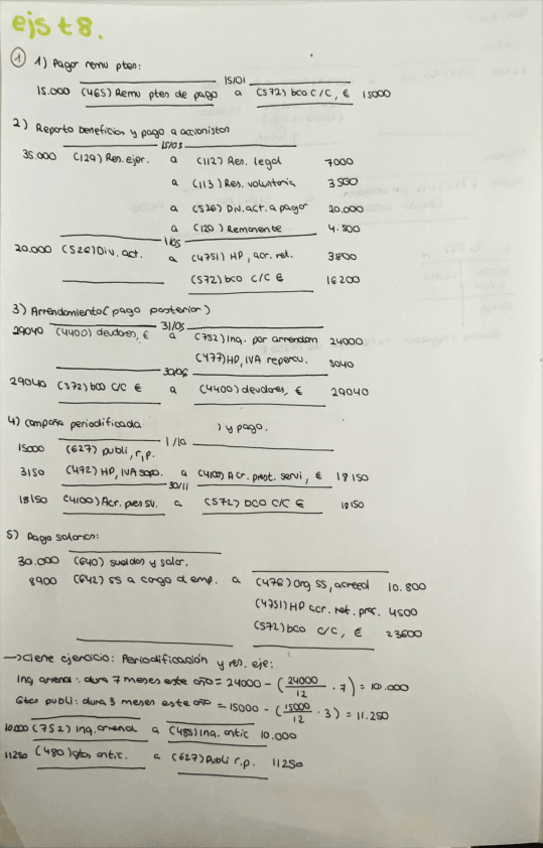 ejs t8.
① 1) Pagar remu ptes:
15/01
15.000 (465) Remu ptes de pago a (572) bco C/C, € 15000
2) Reparto beneficios y pago a accionistas
15/03
35.000 (129) Res. ejer. a (112) Res. legal 7000
a (113) Res. voluntaria 3500
a (526) Div. act. a pagar 20.000
a (120) Remanente 4.500
1/05
20.000 (526) Div. act. a (4751) HP, acr. ret. 3800
(572) bco C/C € 16200
3) Arrendamiento (pago posterior)
31/05
29040 (4400) deudores, € a (752) Ing. por arrendam 24000
(477) HD, IVA repercu. 5040
30/06
29040 (572) bco C/C € a (4400) deudores, € 29040
4) campaña periodificada ) y pago.
1/10
15000 (627) publi, r.p.
3150 (472) HD, IVA sopo. a (4100) Acr. prest. servi, € 18150
30/11
18150 (4100) Acr. pres sv. a (572) bco C/C € 18150
5) Pago salarios:
30.000 (640) sueldos y salar.
8900 (642) SS a cargo d emp. a (476) Org SS, acreed 10.800
(4751) HD acr. ret. prac. 4500
(572) bco C/C, € 23600
→ Cierre ejercicio: Periodificación y res. eje:
Ing arrend: dura 7 meses este año = 24000 - (24000/12 · 7) = 10.000
Gtos publi: dura 3 meses este año = 15000 - (15000/12 · 3) = 11.250
10.000 (752) Ing. arrend a (485) Ing. antic 10.000
11250 (480) gtos, antic. a (627) Publi r.p. 11250